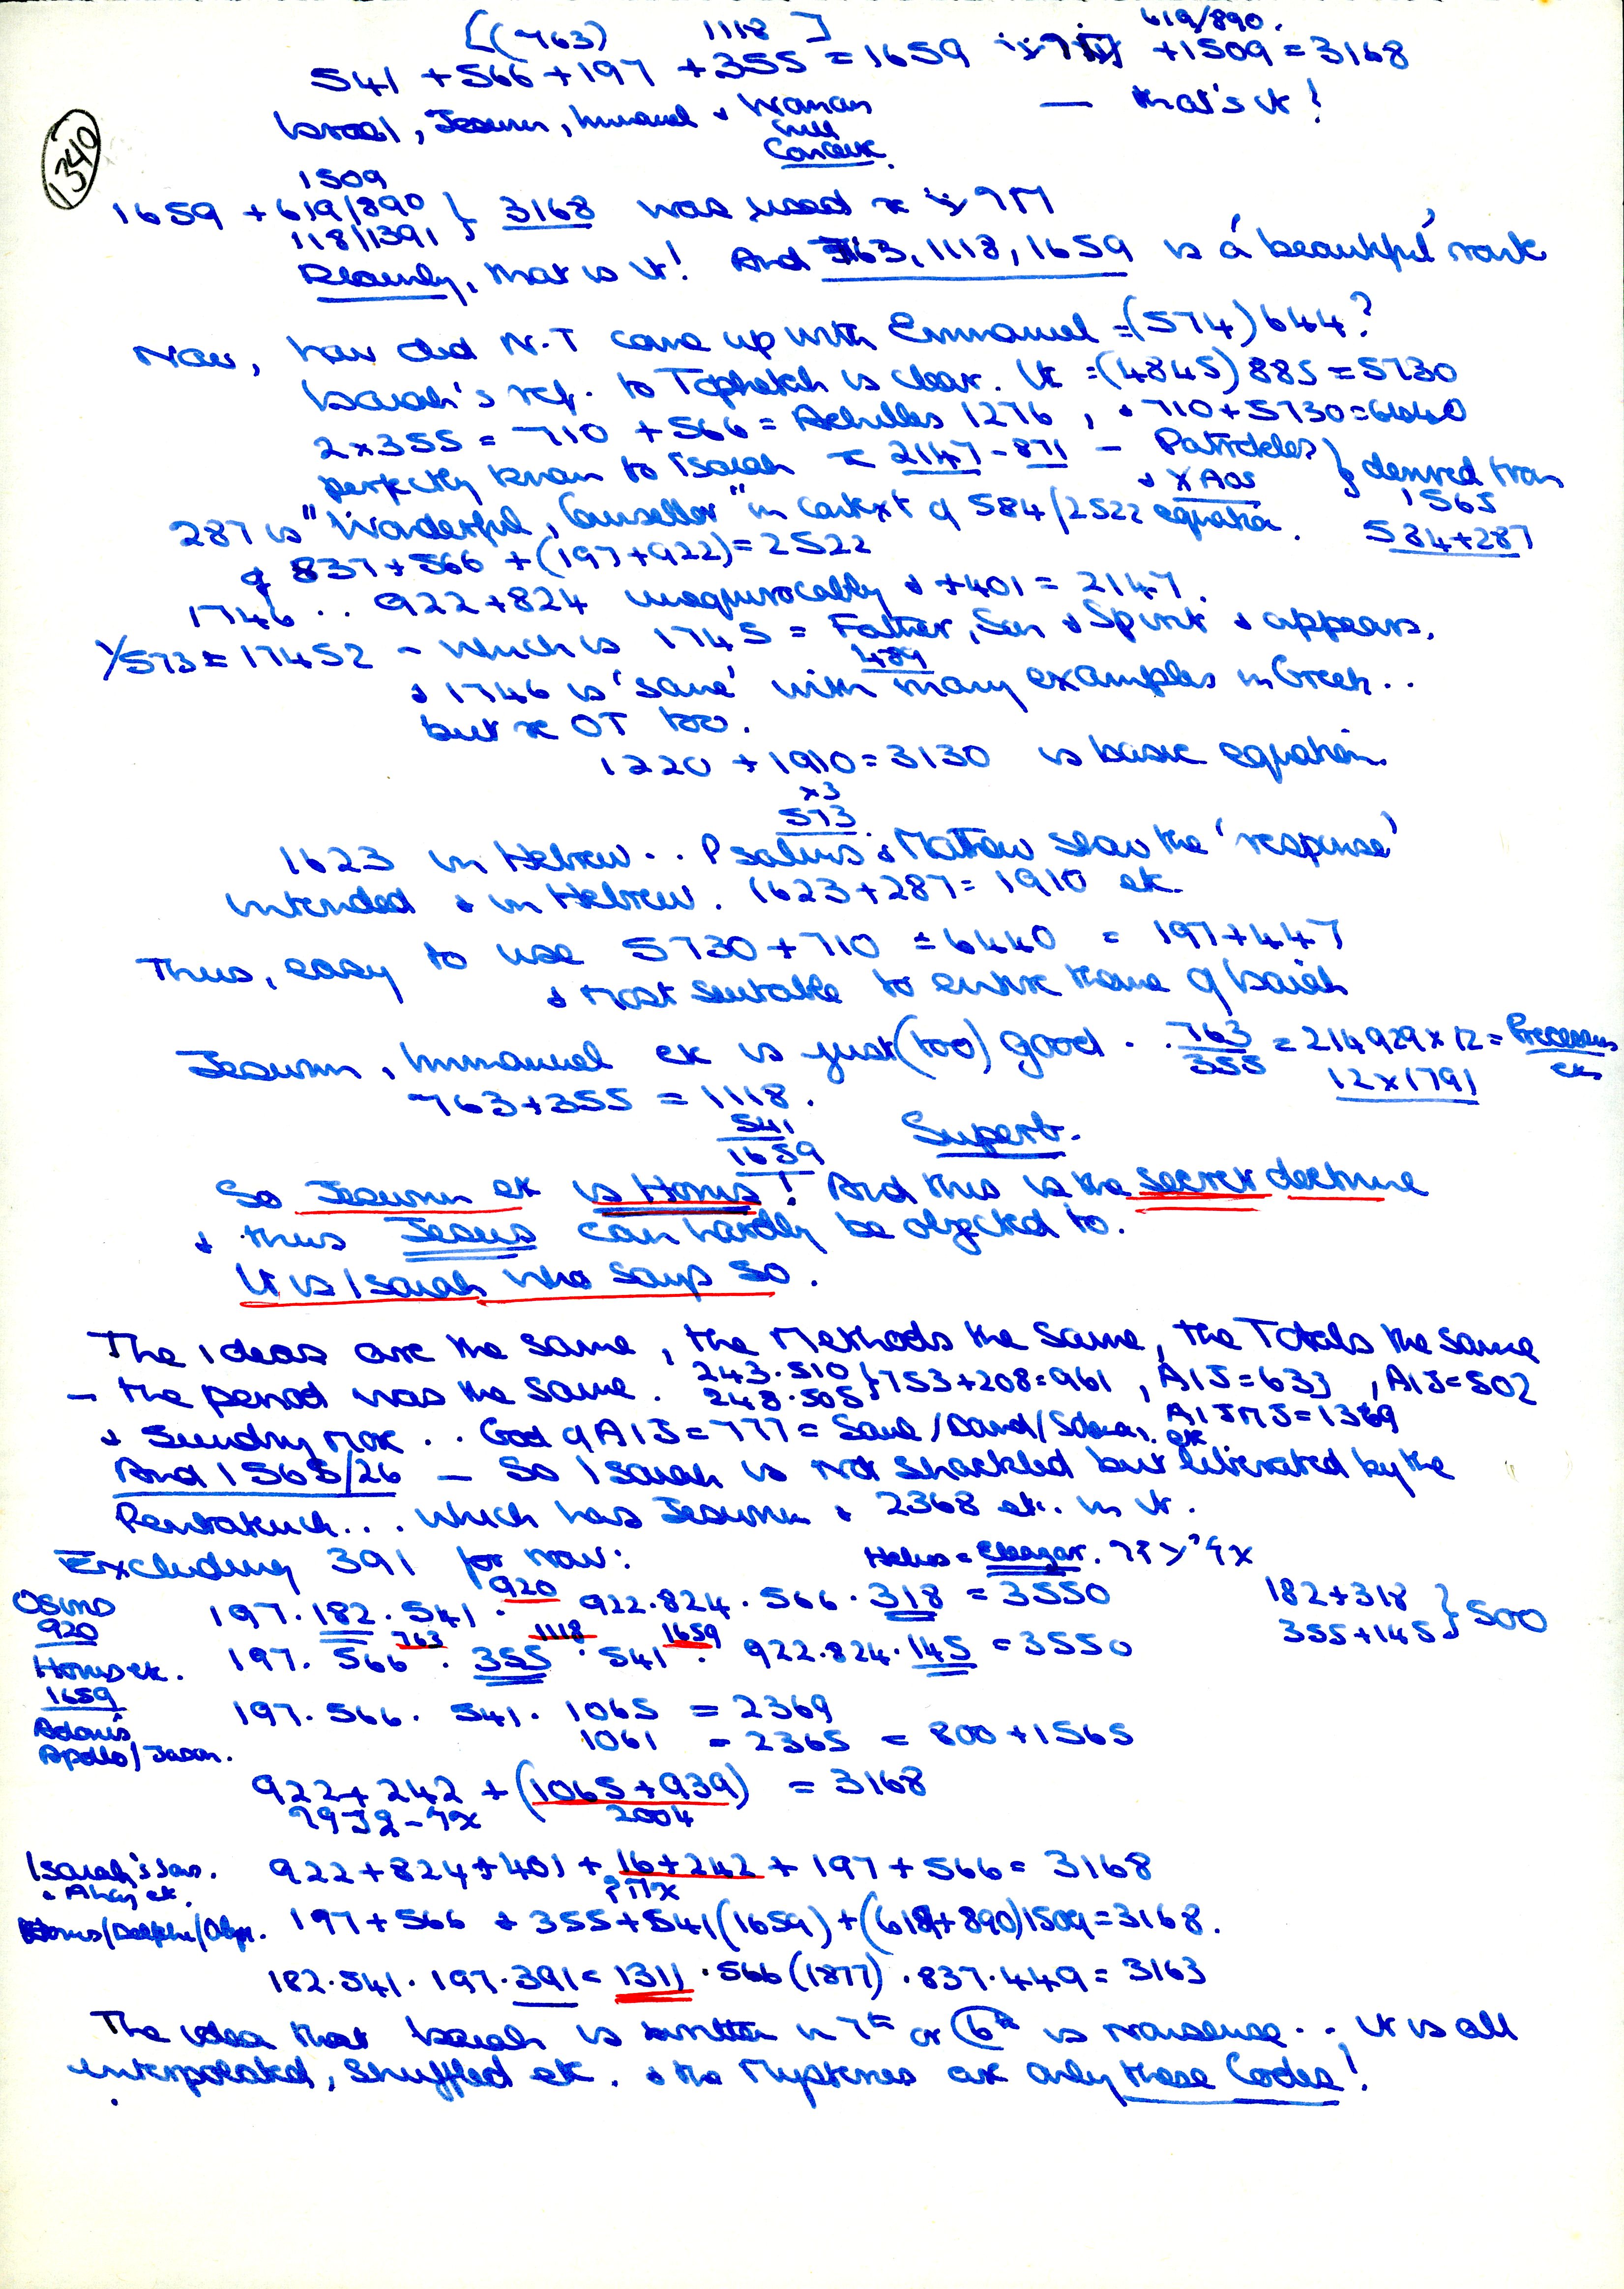 [(763) 1118 ] 619/890.
541 + 566 + 197 + 355 = 1659 +1509 = 3168
Israel, Jesurun, Immanuel + Woman — that's it!
will
Conceive.
1340
1509
1659 + 619/890 } 3168 was used
118/1391
Clearly, that is it! And 763, 1118, 1659 is a 'beautiful' route
Now, how did N.T come up with Emmanuel = (574) 644?
Isaiah's ref. to Tophetch is clear. It = (4845) 885 = 5730
2x355 = 710 + 566 = Achilles 1276, + 710 + 5730 = 6440
perfectly known to Isaiah 2147 - 871 - Patrokles } derived from
+ ΧΑΟΣ 1565
287 is "Wonderful, Counsellor" in context of 584/2522 equation. 584+287
of 837 + 566 + (197+922) = 2522
1746 .. 922+824 unequivocally + +401 = 2147.
1/573 = 17452 - which is 1745 = Father, Son + Spirit + appears.
489
+ 1746 is 'same' with many examples in Greek..
but OT too.
1220 + 1910 = 3130 is basic equation.
x3
573
1623 in Hebrew.. Psalms + Matthew show the 'response'
intended + in Hebrew. 1623+287 = 1910 etc.
Thus, easy to use 5730 + 710 = 6440 = 197+447
+ most suitable to entire theme of Isaiah
Jesurun, Immanuel etc is just (too) good .. 763 = 214929 x 12 = Precession
355 12 x 1791 etc
763 + 355 = 1118.
541
1659 Superb.
So Jesurun etc is Horus! And this is the secret doctrine
+ thus Jesus can hardly be objected to.
It is Isaiah who says so.
The ideas are the same, the Methods the same, the Totals the same
- the period was the same. 243.510 } 753+208=961, AIJ=633, AIJ=502
248.505
+ Sundry more .. God of AIJ = 777 = Saul/David/Solomon. AIJMJ=1369
etc
And 1565/26 - So Isaiah is not shackled but liberated by the
Pentateuch... which has Jesurun + 2368 etc. in it.
Excluding 391 for now: Helios = Eleazar.
Osiris 920
920 197.182.541. 922.824.566.318 = 3550 182+318 } 500
763 1118 1659 355+145
Horus etc. 197.566.355.541.922.824.145 = 3550
1659
Adonis 197.566.541.1065 = 2369
Apollo/Jason. 1061 = 2365 = 800+1565
922+242+(1065+939) = 3168
2004
Isaiah's sons. 922+824+401+16+242+197+566 = 3168
+ Ahaz etc.
Horus/Delphi/Olym. 197+566+355+541(1659)+(619+890)1509=3168.
182.541.197.391 = 1311.566(1877).837.449=3163
The idea that Isaiah is written in 7th or 6th is nonsense.. it is all
interpolated, shuffled etc. + the Mysteries are only these Codes!